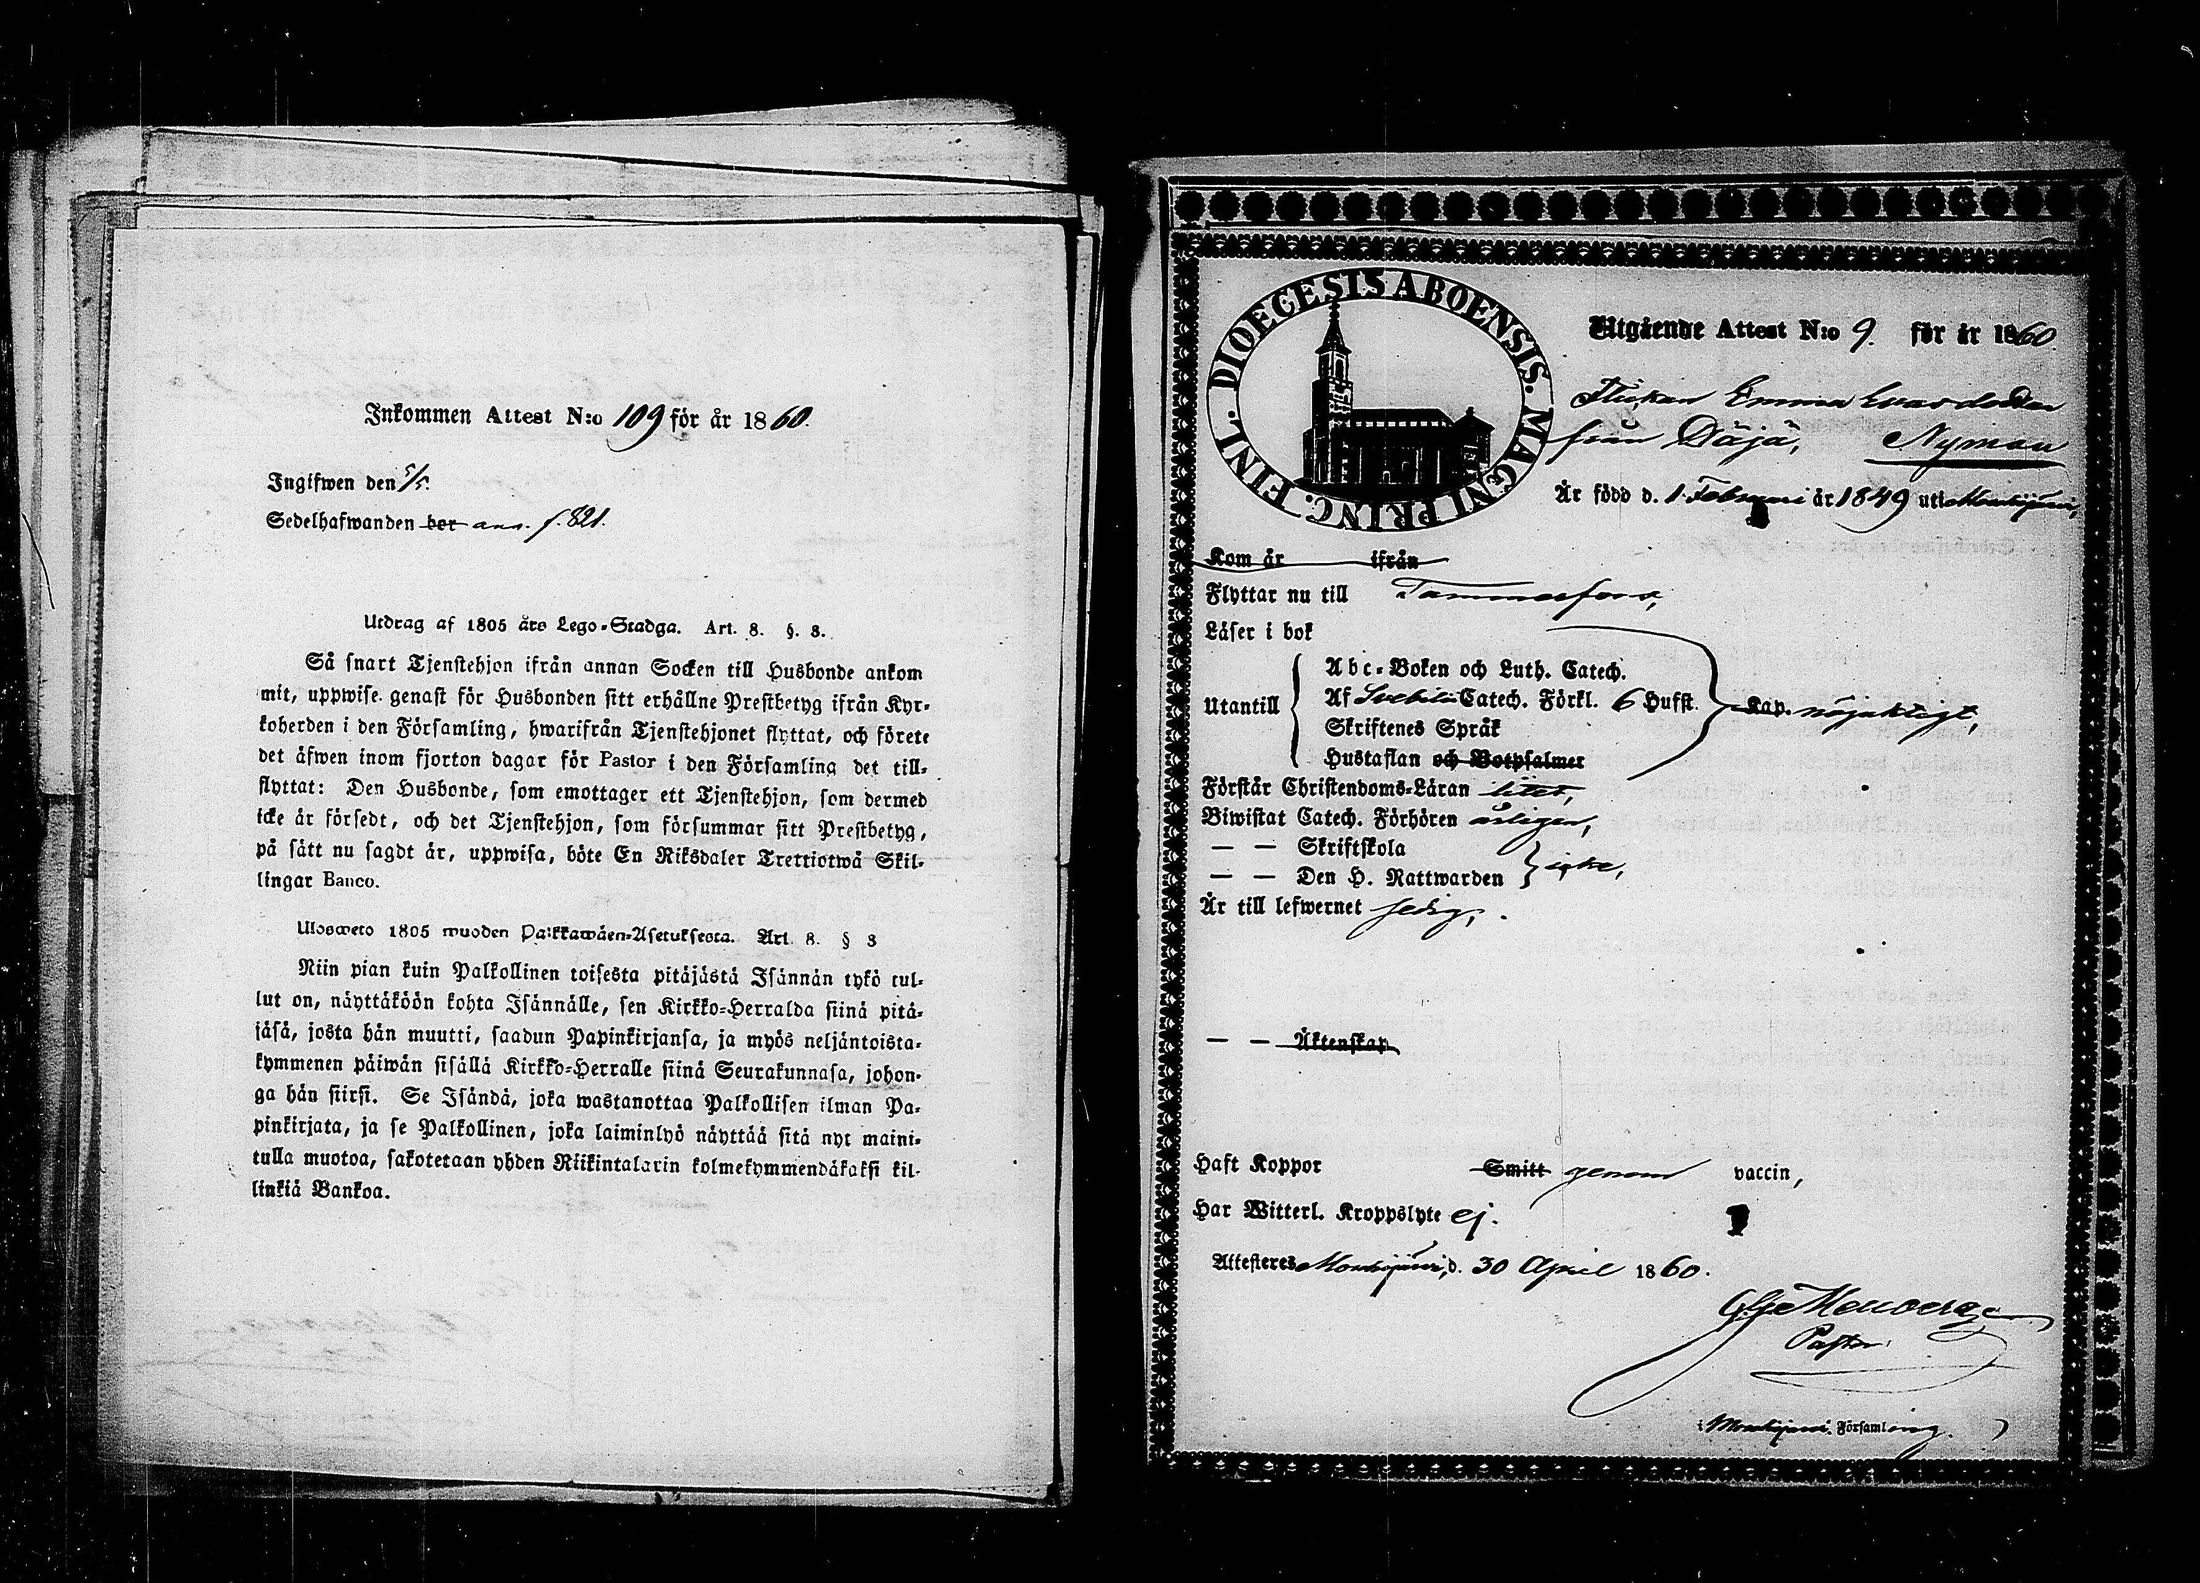 Inkommen Attest N:o 109 för år 1860.
Ingifwen den 5/5.
Sedelhafwanden bor ann. f. 821.
Utdrag af 1805 års Lego-Stadga. Art. 8. §. 8.
Så snart Tjenstehjon ifrån annan Socken till Husbonde ankom
mit, uppwise genast för Husbonden sitt erhållne Prestbetyg ifrån Kyr-
koherden i den Församling, hwarifrån Tjenstehjonet flyttat, och förete
det äfwen inom fjorton dagar för Pastor i den Församling det till-
flyttat: Den Husbonde, som emottager ett Tjenstehjon, som dermed
icke är försedt, och det Tjenstehjon, som försummar sitt Prestbetyg,
på sätt nu sagdt är, uppwisa, böte En Riksdaler Trettiotwå Skil-
lingar Banco.
Ulosweto 1805 wuoden Palkkawäen-Asetuksesta. Art. 8. § 8
Niin pian kuin Palkollinen toisesta pitäjästä Isännän tykö tul-
lut on, näyttäköön kohta Isännälle, sen Kirkko-Herralda siinä pitä-
jäsä, josta hän muutti, saadun Papinkirjansa, ja myös neljäntoista-
kymmenen päiwän sisällä Kirkko-Herralle siinä Seurakunnasa, johon-
ga hän siirsi. Se Isändä, joka wastanottaa Palkollisen ilman Pa-
pinkirjata, ja se Palkollinen, joka laiminlyö näyttää sitä nyt maini-
tulla muotoa, sakotetaan yhden Riikintalarin kolmekymmendäkaksi kil-
linkiä Bankoa.
DIOECESIS ABOENSIS. MAGNI PRINC. FINL.
Utgående Attest N:o 9. för år 1860.
Flickan Emma Evardotter
från Däjä, Nyman
Är född d. 1 Februari år 1849 uti Mouhijärvi,
Kom år ifrån
Flyttar nu till Tammerfors,
Läser i bok
Utantill
Abc-Boken och Luth. Catech.
Af Svebilii Catech. Förkl. 6 Hufst. Kap. nöjaktigt,
Skriftenes Språk
Hustaflan och Botpsalmer
Förstår Christendoms-Läran litet,
Biwistat Catech. Förhören årligen,
— — Skriftskola
— — Den H. Nattwarden } icke,
Är till lefwernet sedig,
— — Äktenskap
Haft Koppor Smitt genom vaccin,
Har Witterl. Kroppslyte ej.
Attesteres Mouhijärvi, d. 30 April 1860.
Pastor
i Mouhijärvi Församling.